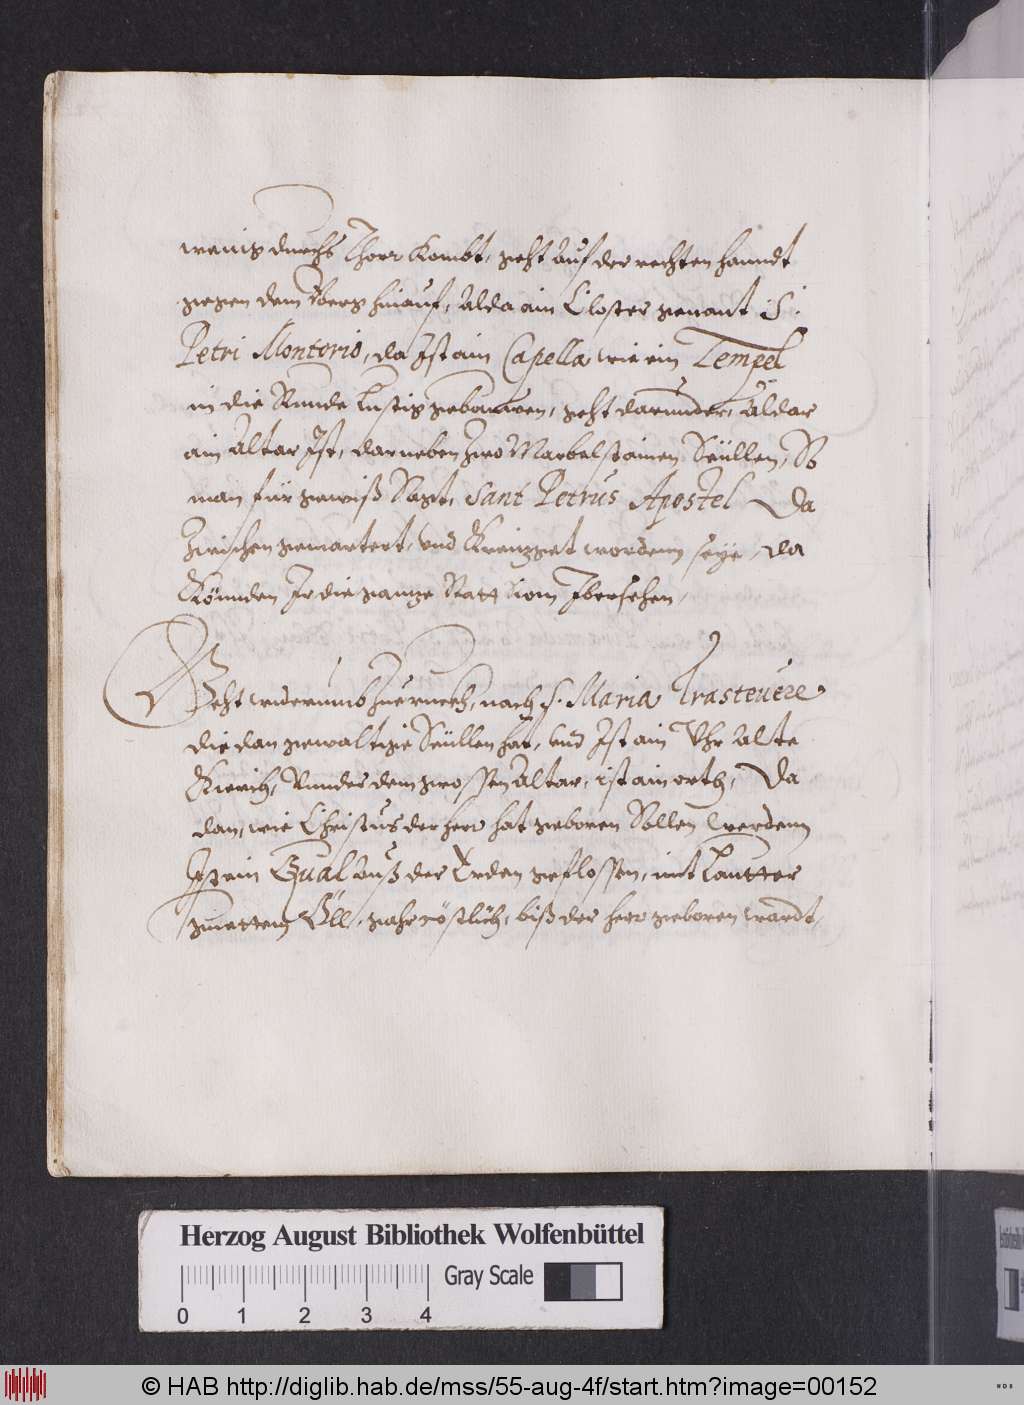 wenig durchs Thorr Kombt, geht auf der rechten handt
gegen dem Berg hinauf, Alda ain Closter genant S.
Petri Montorio, da Ist ain Capella wie ein Tempel
in die Runde lustig gebauwen, geht darunder, Aldar
ain Altar Ist, darneben zwo Marbelstainen Seüllen, So
man für gewiß Sagt, Sant Petrus Apostel Da
zwischen gemartert, und Kreuzget wordenn seye, da
Könnden Ir die gantze Statt Rom Ibersehen,
Geht widerumb Zuerueckh, nach S. Maria Trasteuere
die dan gewaltige Seüllen hat, und Ist ain Uhr Alte
Kirch, Under dem grossen Altar, ist ain orth, Da
dan, wie Christus der herr hat geboren Sollen werdenn
Ist ein Qual Auß der Erden geflossen, mit Lautter
guettem Öll, gahr cöstlich, biß der herr geboren wardt,
Herzog August Bibliothek Wolfenbüttel
Gray Scale
0 1 2 3 4
© HAB http://diglib.hab.de/mss/55-aug-4f/start.htm?image=00152